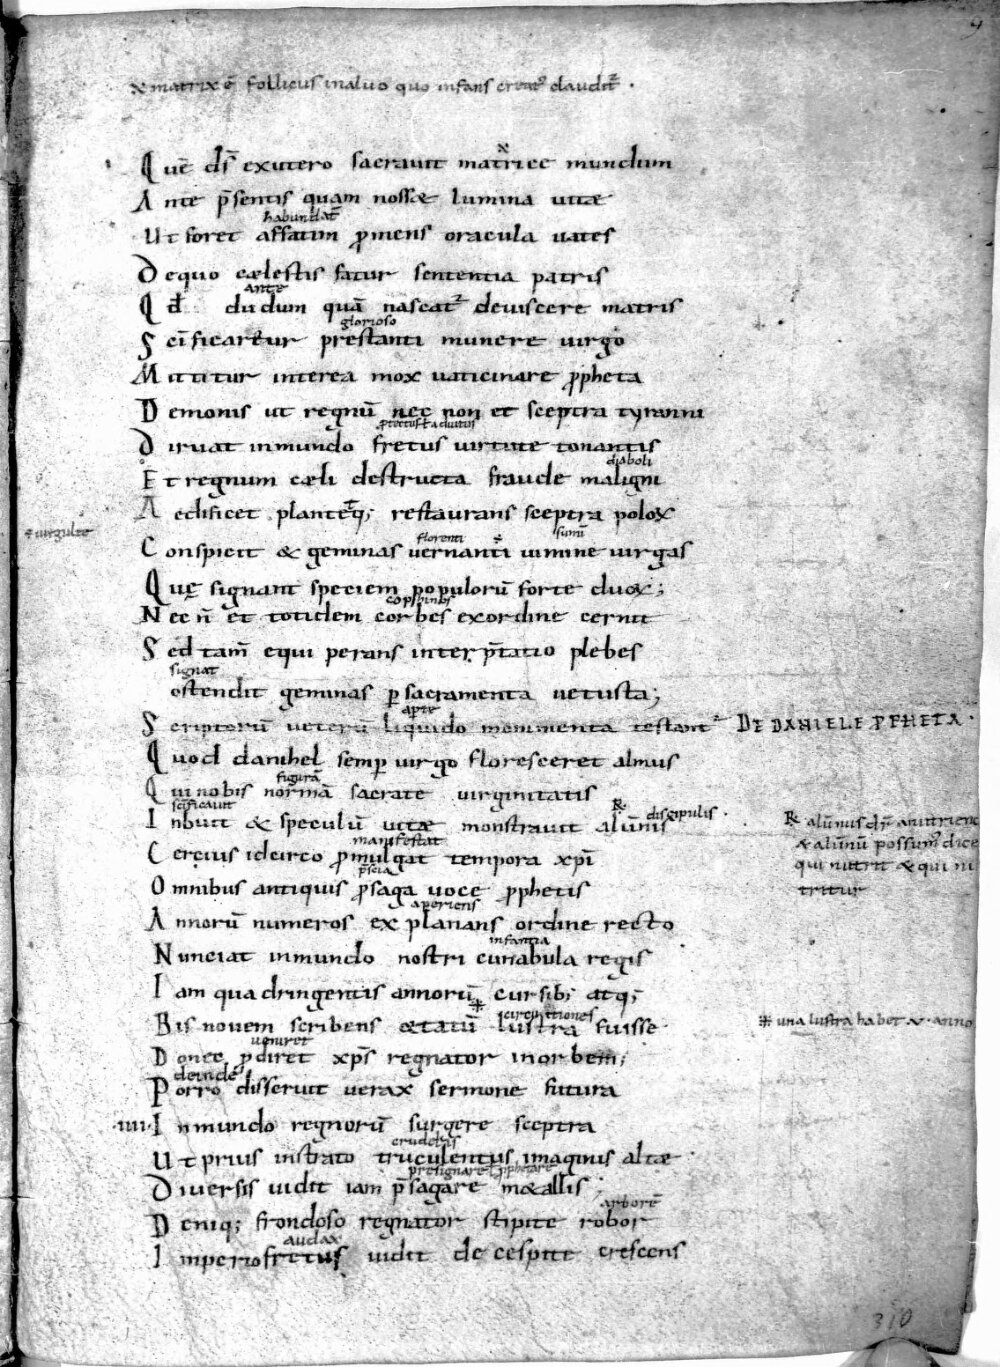 9
matrix ē follicus inaluo quo infans creat᷒ claudit᷒ ·
Quē ds̄ exutero sacrauit matrice mundum
Ante p̄sentis quam nosset lumina uitae
habundat̄
Ut foret affatim p̄mens oracula uates
Dequo cælestis fatur sententia patris
ante
Qđ dudum quā nascat᷒ deuiscere matris
glorioso
Scīficaretur prestanti munere uirgo
Mittitur interea mox uaticinare p̄pheta
Demonis ut regnū nec non et sceptra tyranni
Diruat inmundo fretus uirtute tonantis
diaboli
Et regnum cæli destructa fraude maligni
Aedificet plantetq; restaurans sceptra polox
uirgulte
florenti
Conspicit & geminas uernanti uimine uirgas
Quę signant speciem populorū forte duas;
cophinos
Nec n̄ et totidem corbes exordine cernit
Sed tam̄ equi perans interp̄tatio plebes
signat
ostendit geminas p̱ sacramenta uetusta;
aperte
Scriptorū ueterū liquido monimenta testant᷒ DE DANIELE PPHETA ·
Quod danihel semp̱ uirgo floresceret almus
figurā
Qui nobis normā sacrate uirginitatis
scīficauit
discipulis ·
Inbuit & speculū uitae monstrauit alūnis
alūnus dr̄ anutriend
& alūnū possum᷒ dice
qui nutrit & qui nu
tritur
manifestat
Cercius idcirco p̄mulgat tempora xp̄i
p̄scia
Omnibus antiquis p̄saga uoce p̄phetis
aperiens
Annorū numeros ex planans ordine recto
infantia
Nunciat inmundo nostri cunabula regis
Iam quadringentis annorū cursib; atq;
Bis nouem scribens ætatū lustra fuisse
una lustra habet xv · anno
ueniret
Donec p̄diret xp̄s regnator inorbem;
deinde
Porro disseruit uerax sermone futura
·IIII· Inmundo regnorū surgere sceptra
crudelis
Ut prius instrato truculentus imaginis altae
presignare ł p̄phetare
Diuersis uidit iam p̄sagare metallis;
arborē
Deniq; frondoso regnator stipite robor
audax
Imperiofretus uidit de cespite crescens
310